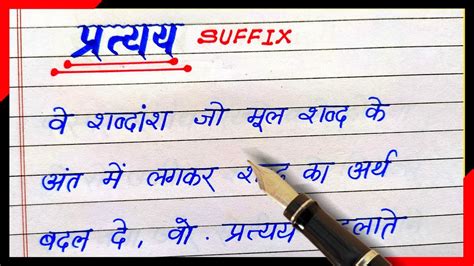 प्रत्यय SUFFIX
वे शब्दांश जो मूल शब्द के
अंत में लगकर का अर्थ
बदल दे, वो. प्रत्यय